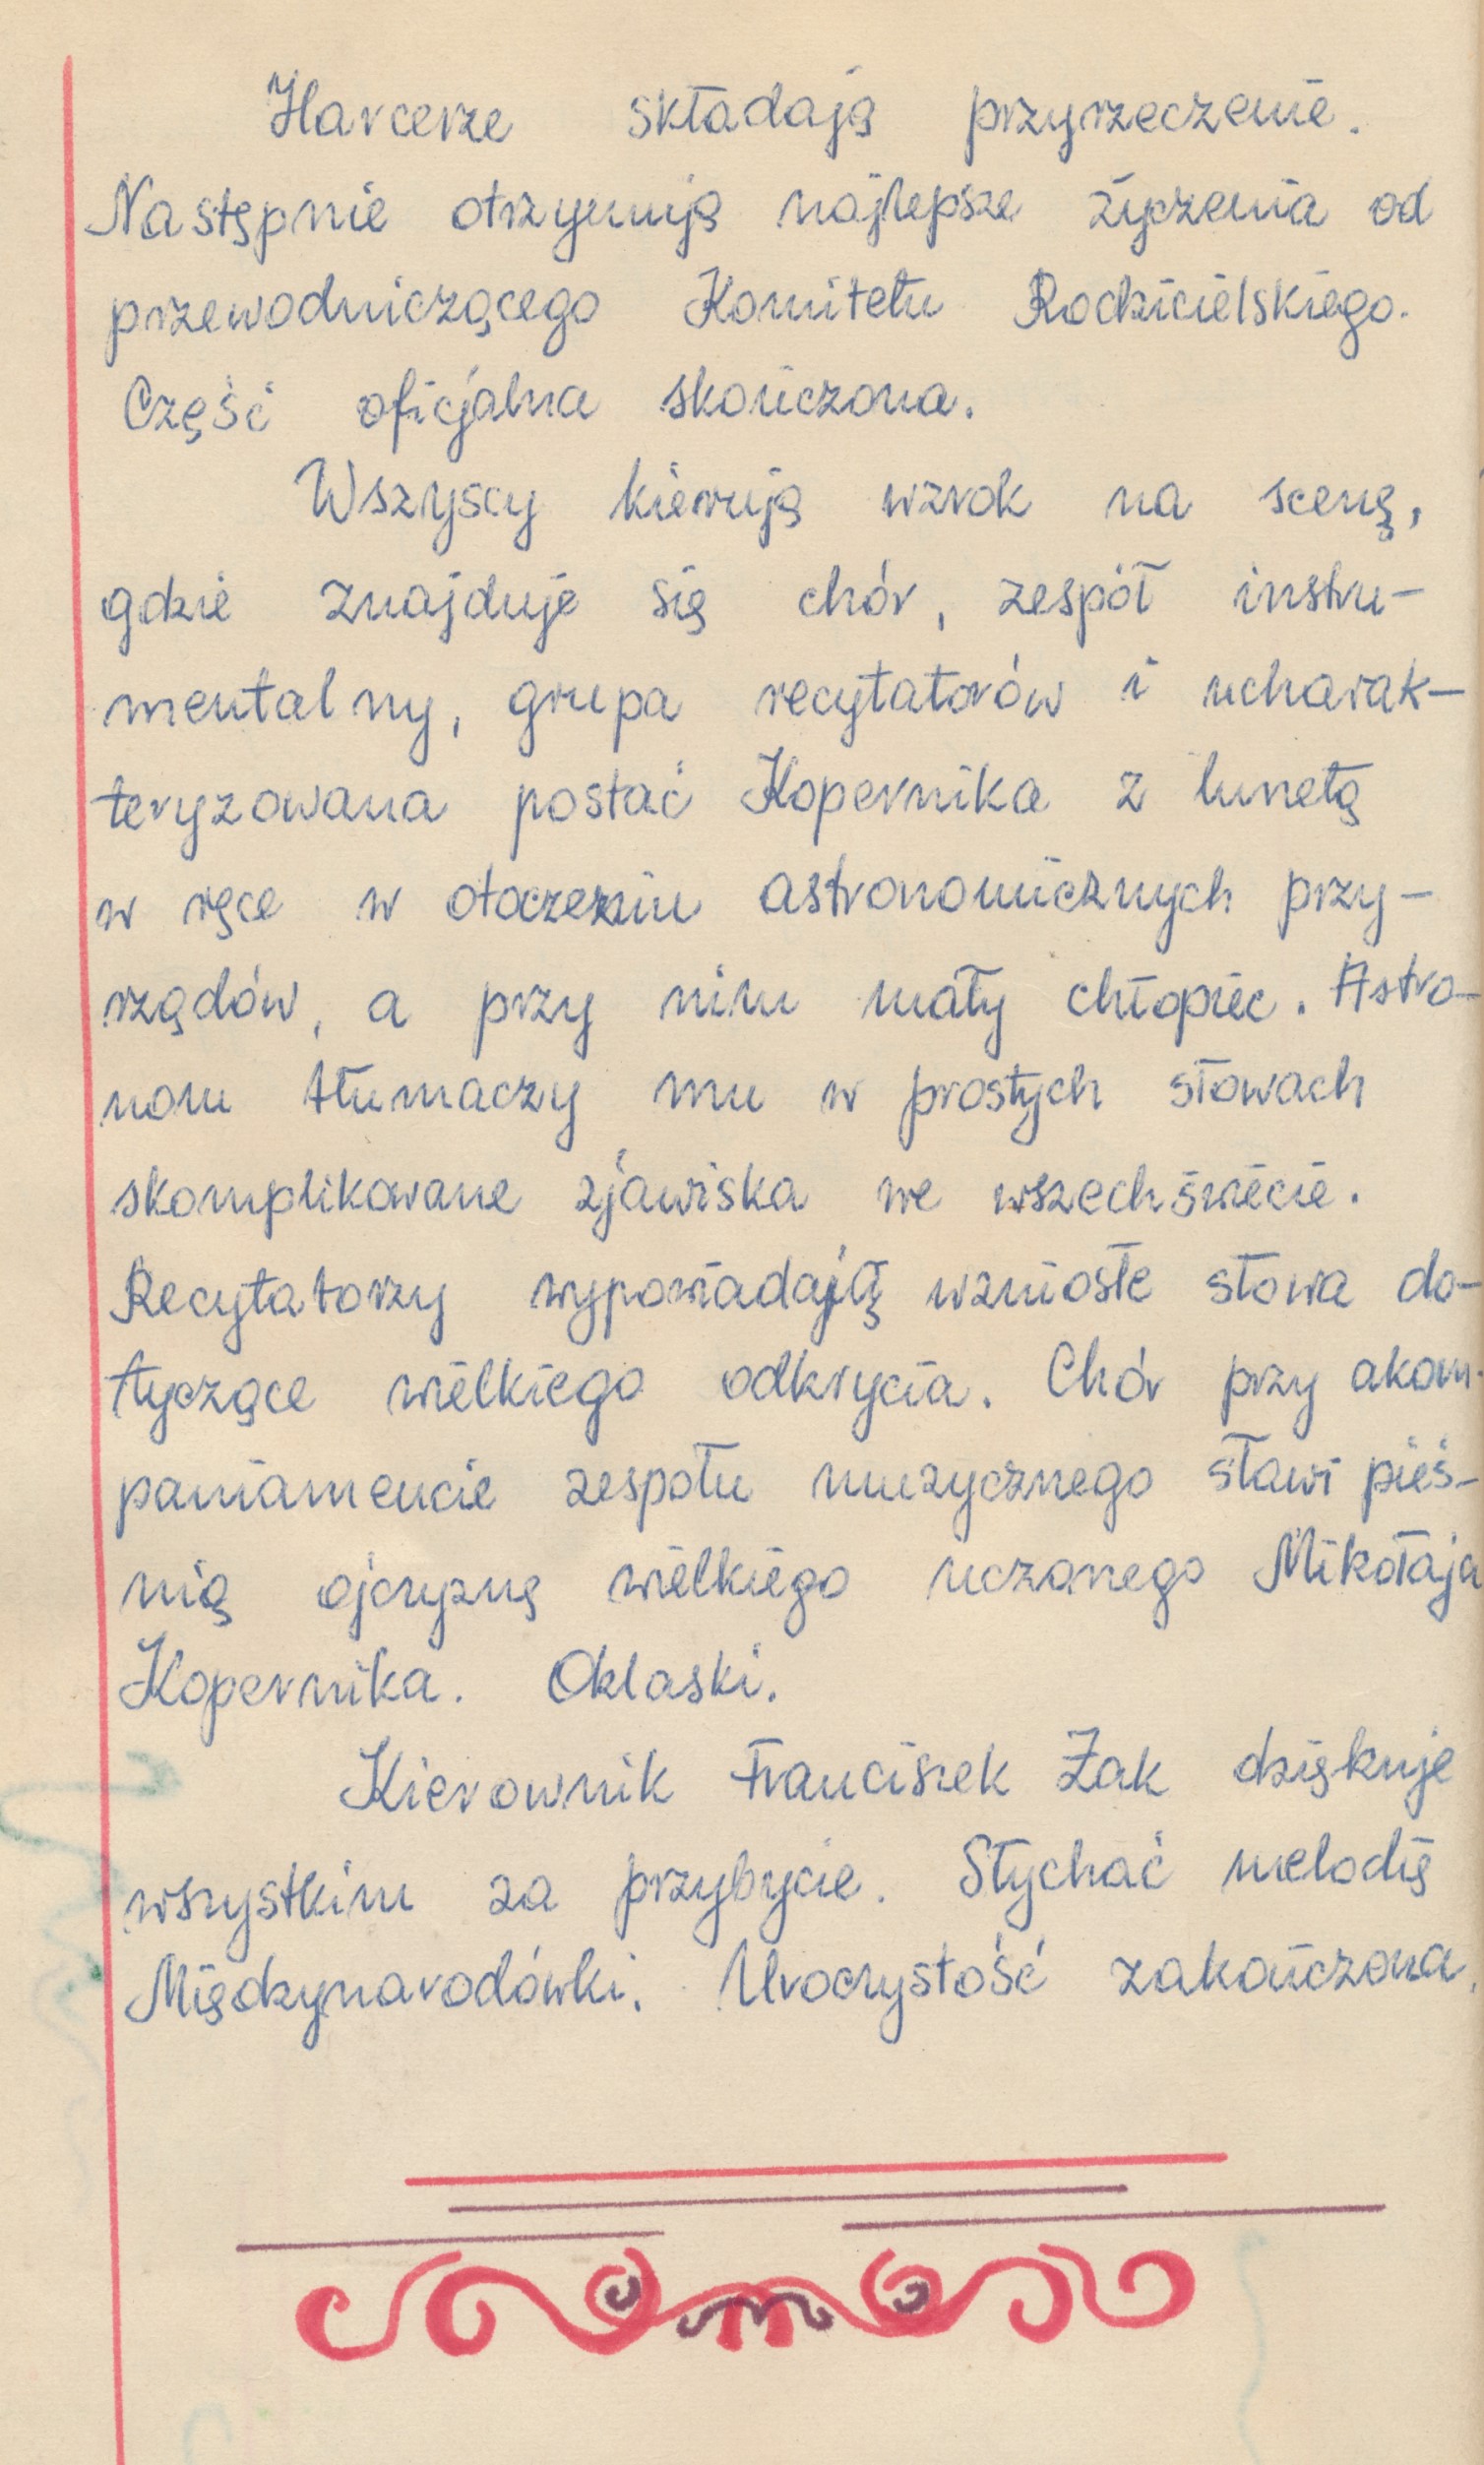 Harcerze składają przyrzeczenie.
Następnie otrzymują najlepsze życzenia od
przewodniczącego Komitetu Rodzicielskiego.
Część oficjalna skończona.
Wszyscy kierują wzrok na scenę,
gdzie znajduje się chór, zespół instru-
mentalny, grupa recytatorów i ucharak-
teryzowana postać Kopernika z lunetą
w ręce w otoczeniu astronomicznych przy-
rządów, a przy nim mały chłopiec. Astro-
nom tłumaczy mu w prostych słowach
skomplikowane zjawiska we wszechświecie.
Recytatorzy wypowiadają wzniosłe słowa do-
tyczące wielkiego odkrycia. Chór przy akom-
paniamencie zespołu muzycznego sławi pieś-
nią ojczyznę wielkiego uczonego Mikołaja
Kopernika. Oklaski.
Kierownik Franciszek Żak dziękuje
wszystkim za przybycie. Słychać melodię
Międzynarodówki. Uroczystość zakończona.